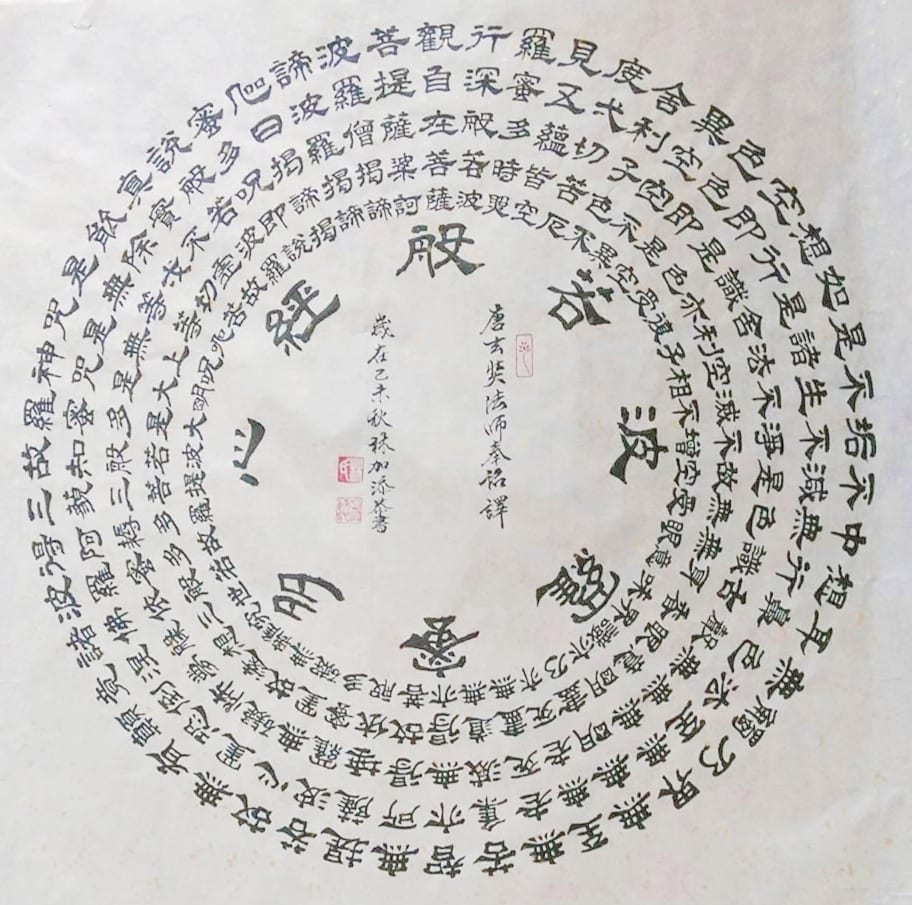 般若波羅蜜多心經
觀自在菩薩
行深般若波
羅蜜多時照
見五蘊皆空
度一切苦厄
舍利子色不
異空空不異
色色即是空
空即是色受
想行識亦復
如是舍利子
是諸法空相
不生不滅不
垢不淨不增
不減是故空
中無色無受
想行識無眼
耳鼻舌身意
無色聲香味
觸法無眼界
乃至無意識
界無無明亦
無無明盡乃
至無老死亦
無老死盡無
苦集滅道無
智亦無得以
無所得故菩
提薩埵依般
若波羅蜜多
故心無罣礙
無罣礙故無
有恐怖遠離
顛倒夢想究
竟涅槃三世
諸佛依般若
波羅蜜多故
得阿耨多羅
三藐三菩提
故知般若波
羅蜜多是大
神咒是大明
咒是無上咒
是無等等咒
能除一切苦
真實不虛故
說般若波羅
蜜多咒即說
咒曰揭諦揭
諦波羅揭諦
波羅僧揭諦
菩提薩婆訶
唐玄奘法師奉詔譯
歲在乙未秋林加添恭書